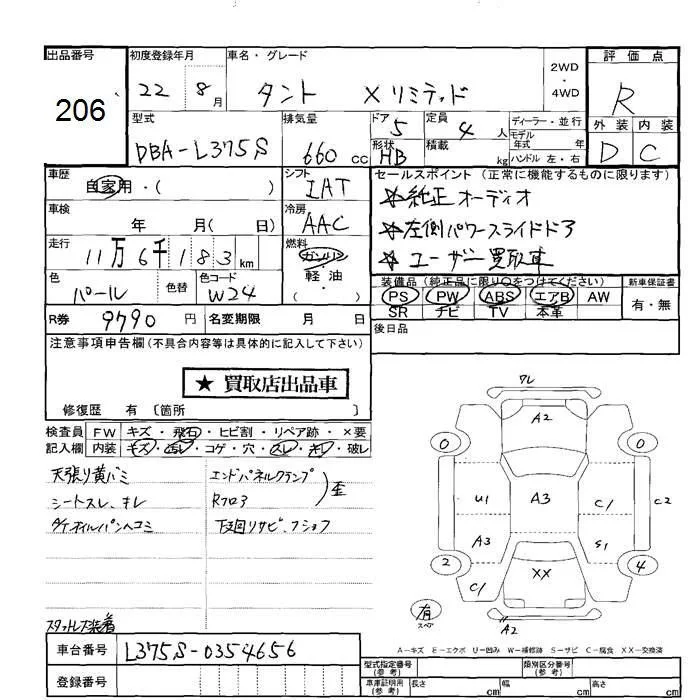 出品番号 初度登録年月 車名・グレード 2WD・4WD 評価点
206 22 8月 タント Xリミテッド R
型式 排気量 ドア 5 定員 4人 ディーラー・並行 外装 内装
DBA-L375S 660cc 形状 HB 積載 kg モデル年式 年 ハンドル 左・右 D C
車歴 自家用・( ) シフト IAT セールスポイント(正常に機能するものに限ります)
車検 年 月( 日) 冷房 AAC ☆純正オーディオ
☆左側パワースライドドア
走行 11万6千183km 燃料 ガソリン・軽油・( ) ☆ユーザー買取車
色 パール 色替 色コード W24 装備品(純正品に限り○をつけてください) 新車保証書
PS PW ABS エアB AW 有・無
SR ナビ TV 本革
R券 9790円 名変期限 月 日 後日品
注意事項申告欄(不具合内容等は具体的に記入して下さい)
★買取店出品車
修復歴 有 〔箇所 〕
検査員 FW キズ・飛石・ヒビ割・リペア跡・×要
記入欄 内装 キズ・汚レ・コゲ・穴・スレ・キレ・破レ
天張り黄バミ エンドパネルクランプ
シートスレ、キレ Rフロア 歪
ダイオイルパンヘコミ 下廻りサビ、フショク
スタットレス装着
ワレ
A2
0 0
U1 A3 C1 C2
A3 S1
2 XX 4
C1
有 スペア A2
A-キズ E-エクボ U-凹み W-補修跡 S-サビ C-腐食 XX-交換済
車台番号 L375S-0354656
登録番号
型式指定番号(参考) 類別区分番号(参考)
車庫証明用(参考) 長さ cm 幅 cm 高さ cm